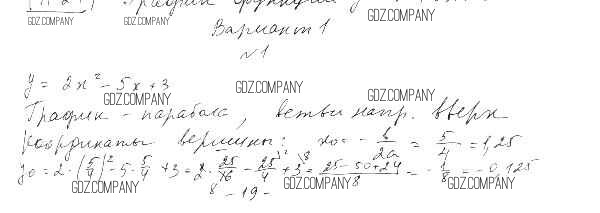 График функции y =
GDZ.COMPANY GDZ.COMPANY
Вариант 1
№1
GDZ.COMPANY
y = 2x² - 5x + 3
GDZ.COMPANY GDZ.COMPANY
График - парабола, ветви напр. вверх
Координаты вершины: x₀ = - b/2a = 5/4 = 1,25
y₀ = 2·(5/4)² - 5·5/4 + 3 = 2·25/16 - 25/4 + 3 = (25-50+24)/8 = -1/8 = -0,125
GDZ.COMPANY GDZ.COMPANY GDZ.COMPANY
- 19 -